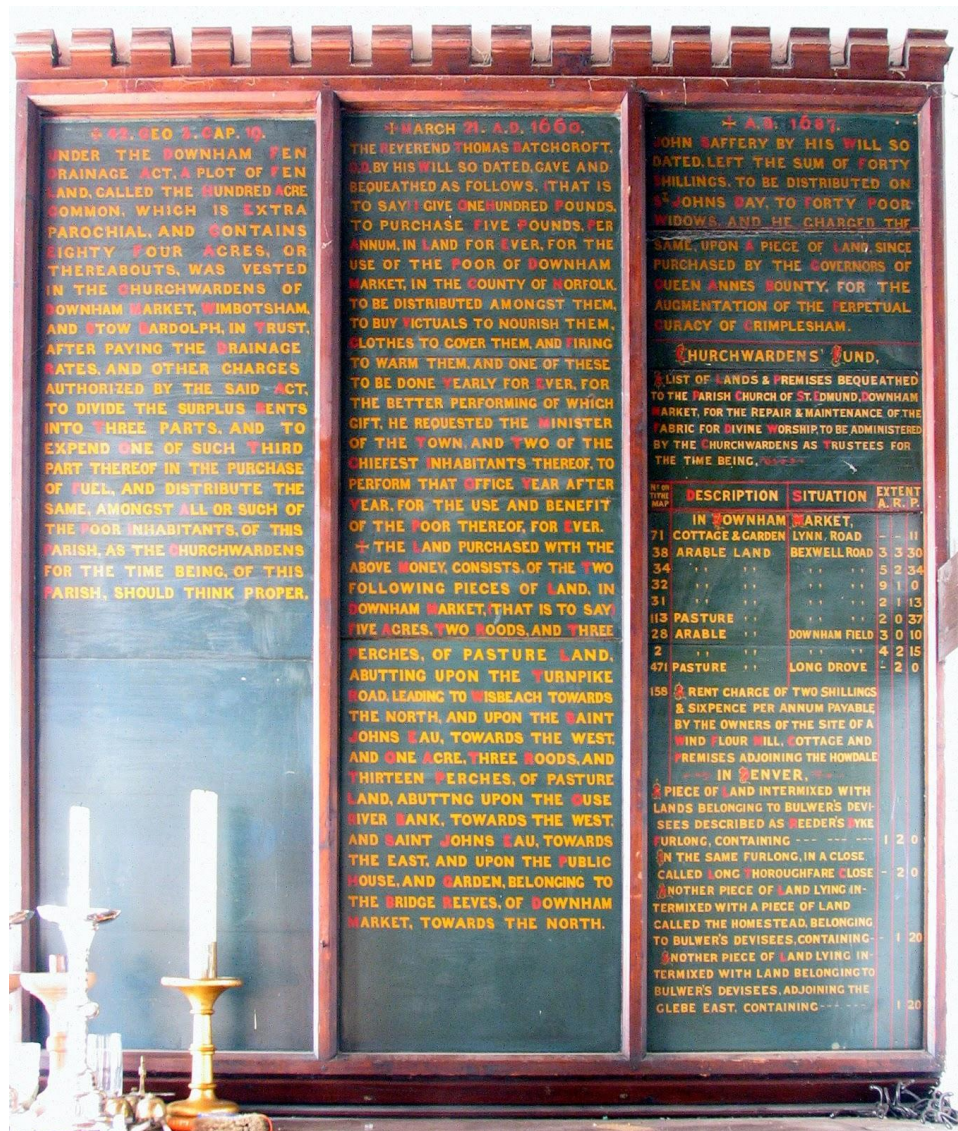 ✠ 42. GEO 3. CAP. 19.
UNDER THE DOWNHAM FEN
DRAINAGE ACT, A PLOT OF FEN
LAND, CALLED THE HUNDRED ACRE
COMMON, WHICH IS EXTRA
PAROCHIAL, AND CONTAINS
EIGHTY FOUR ACRES, OR
THEREABOUTS, WAS VESTED
IN THE CHURCHWARDENS OF
DOWNHAM MARKET, WIMBOTSHAM,
AND STOW BARDOLPH, IN TRUST,
AFTER PAYING THE DRAINAGE
RATES, AND OTHER CHARGES
AUTHORIZED BY THE SAID ACT,
TO DIVIDE THE SURPLUS RENTS
INTO THREE PARTS, AND TO
EXPEND ONE OF SUCH THIRD
PART THEREOF IN THE PURCHASE
OF FUEL, AND DISTRIBUTE THE
SAME, AMONGST ALL OR SUCH OF
THE POOR INHABITANTS, OF THIS
PARISH, AS THE CHURCHWARDENS
FOR THE TIME BEING, OF THIS
PARISH, SHOULD THINK PROPER.
✠ MARCH 21. A.D. 1660.
THE REVEREND THOMAS BATCHCROFT,
D.D. BY HIS WILL SO DATED, GAVE AND
BEQUEATHED AS FOLLOWS, (THAT IS
TO SAY) I GIVE ONE HUNDRED POUNDS,
TO PURCHASE FIVE POUNDS, PER
ANNUM, IN LAND FOR EVER, FOR THE
USE OF THE POOR OF DOWNHAM
MARKET, IN THE COUNTY OF NORFOLK,
TO BE DISTRIBUTED AMONGST THEM,
TO BUY VICTUALS TO NOURISH THEM,
CLOTHES TO COVER THEM, AND FIRING
TO WARM THEM, AND ONE OF THESE
TO BE DONE YEARLY FOR EVER, FOR
THE BETTER PERFORMING OF WHICH
GIFT, HE REQUESTED THE MINISTER
OF THE TOWN, AND TWO OF THE
CHIEFEST INHABITANTS THEREOF, TO
PERFORM THAT OFFICE YEAR AFTER
YEAR, FOR THE USE AND BENEFIT
OF THE POOR THEREOF, FOR EVER.
✠ THE LAND PURCHASED WITH THE
ABOVE MONEY, CONSISTS, OF THE TWO
FOLLOWING PIECES OF LAND, IN
DOWNHAM MARKET, (THAT IS TO SAY)
FIVE ACRES, TWO ROODS, AND THREE
PERCHES, OF PASTURE LAND,
ABUTTING UPON THE TURNPIKE
ROAD, LEADING TO WISBEACH TOWARDS
THE NORTH, AND UPON THE SAINT
JOHNS EAU, TOWARDS THE WEST,
AND ONE ACRE, THREE ROODS, AND
THIRTEEN PERCHES, OF PASTURE
LAND, ABUTTNG UPON THE OUSE
RIVER BANK, TOWARDS THE WEST,
AND SAINT JOHNS EAU, TOWARDS
THE EAST, AND UPON THE PUBLIC
HOUSE, AND GARDEN, BELONGING TO
THE BRIDGE REEVES, OF DOWNHAM
MARKET, TOWARDS THE NORTH.
✠ A.D. 1687.
JOHN SAFFERY BY HIS WILL SO
DATED, LEFT THE SUM OF FORTY
SHILLINGS, TO BE DISTRIBUTED ON
ST JOHNS DAY, TO FORTY POOR
WIDOWS, AND HE CHARGED THE
SAME, UPON A PIECE OF LAND, SINCE
PURCHASED BY THE GOVERNORS OF
QUEEN ANNES BOUNTY, FOR THE
AUGMENTATION OF THE PERPETUAL
CURACY OF CRIMPLESHAM.
CHURCHWARDENS' FUND,
A LIST OF LANDS & PREMISES BEQUEATHED
TO THE PARISH CHURCH OF ST. EDMUND, DOWNHAM
MARKET, FOR THE REPAIR & MAINTENANCE OF THE
FABRIC FOR DIVINE WORSHIP, TO BE ADMINISTERED
BY THE CHURCHWARDENS AS TRUSTEES FOR
THE TIME BEING,
No ON TITHE MAP DESCRIPTION SITUATION EXTENT A. R. P.
IN DOWNHAM MARKET,
71 COTTAGE & GARDEN LYNN, ROAD - - 11
38 ARABLE LAND BEXWELL ROAD 3 3 30
34 '' '' '' '' 5 2 34
32 '' '' '' '' 9 1 0
31 '' '' '' '' 2 1 13
113 PASTURE '' '' '' 2 0 37
28 ARABLE '' DOWNHAM FIELD 3 0 10
2 '' '' '' '' 4 2 15
471 PASTURE '' LONG DROVE - 2 0
158 A RENT CHARGE OF TWO SHILLINGS
& SIXPENCE PER ANNUM PAYABLE
BY THE OWNERS OF THE SITE OF A
WIND FLOUR MILL, COTTAGE AND
PREMISES ADJOINING THE HOWDALE
IN DENVER,
A PIECE OF LAND INTERMIXED WITH
LANDS BELONGING TO BULWER'S DEVI-
SEES DESCRIBED AS REEDER'S DYKE
FURLONG, CONTAINING - - - - 1 2 0
IN THE SAME FURLONG, IN A CLOSE
CALLED LONG THOROUGHFARE CLOSE - 2 0
ANOTHER PIECE OF LAND LYING IN-
TERMIXED WITH A PIECE OF LAND
CALLED THE HOMESTEAD, BELONGING
TO BULWER'S DEVISEES, CONTAINING - - 1 20
ANOTHER PIECE OF LAND LYING IN-
TERMIXED WITH LAND BELONGING TO
BULWER'S DEVISEES, ADJOINING THE
GLEBE EAST, CONTAINING - - - - 1 20